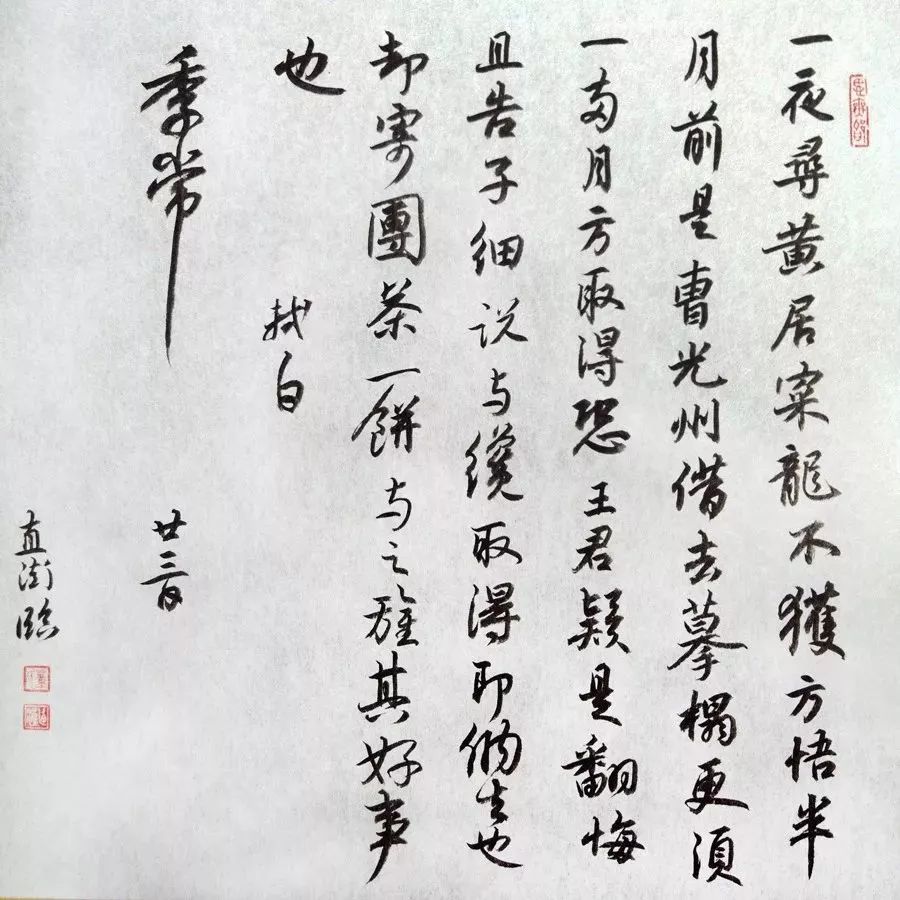 一夜尋黄居寀龍不獲方悟半
月前是曹光州借去摹榻更須
一两月方取得恐王君疑是翻悔
且告子細説与纔取得即納去也
却寄團茶一餅与之旌其好事
也
軾白
季常
廿三日
直街臨